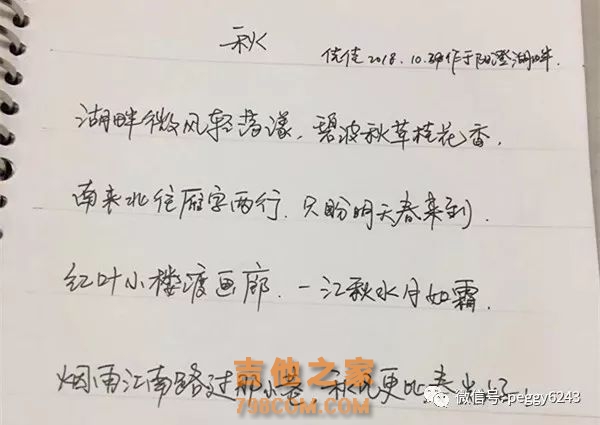 秋
佳佳2018.10.29作于阳澄湖畔.
湖畔微风轻荡漾,碧波秋草桂花香,
南来北往雁字两行,只盼明天春来到.
红叶小楼渡画廊.一江秋水月如霜.
烟雨江南路过那小巷,秋风更比春光好,
吉他之家
798COM.COM
微信号:peggy6243